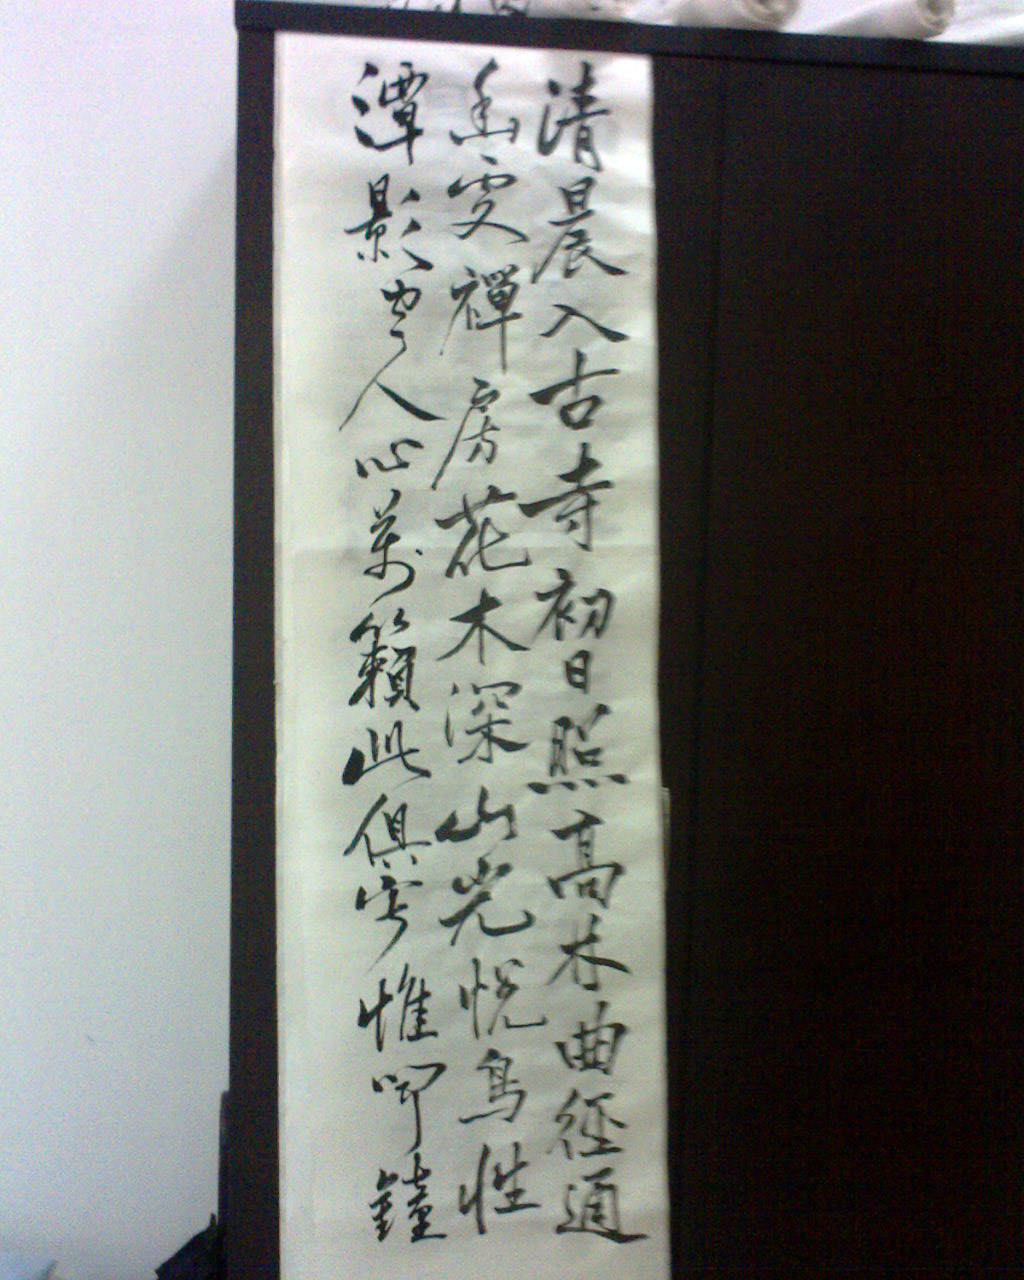 清晨入古寺初日照高林曲徑通
幽處禪房花木深山光悅鳥性
潭影空人心萬籟此俱寂惟叩鐘